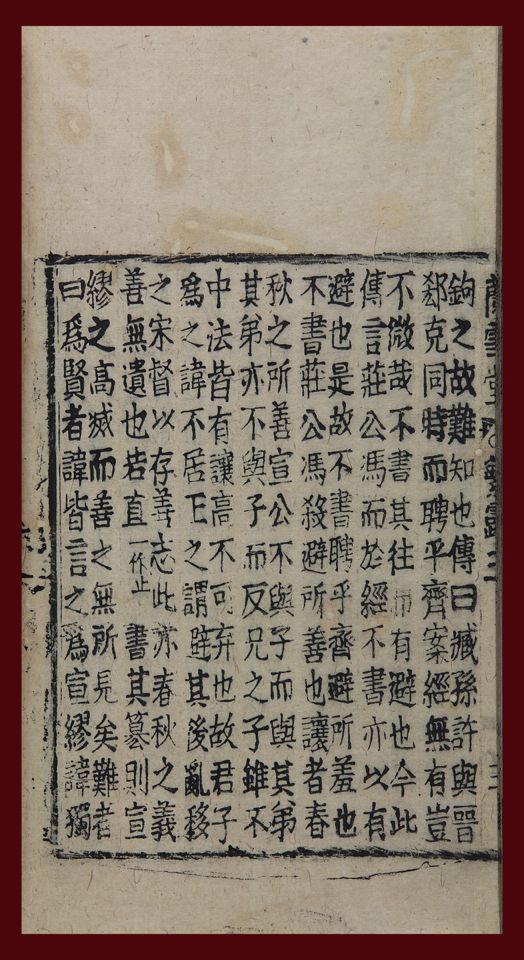 蘭雪堂
鉤之故難知也傳曰臧孫許與晉
郄克同時而聘乎齊案經無有豈
不微哉不書其往而有避也今此
傳言莊公馮而於經不書亦以有
避也是故不書聘乎齊避所羞也
不書莊公馮殺避所善也讓者春
秋之所善宣公不與子而與其弟
其弟亦不與子而反兄之子雖不
中法皆有讓高不可弃也故君子
爲之諱不居正之謂避其後亂移
之宋督以存善志此亦春秋之義
善無遺也若直一作止書其篡則宣
繆之高滅而善之無所見矣難者
曰爲賢者諱皆言之爲宣繆諱獨